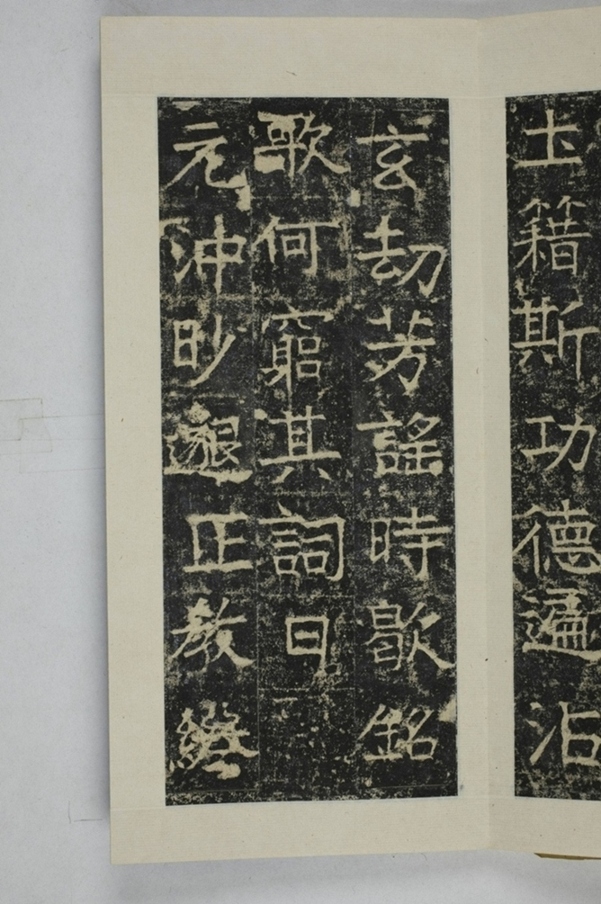 圡籍斯功德遍沾
玄刧芳謠時歇銘
歌何窮其詞曰
元沖眇邈正教